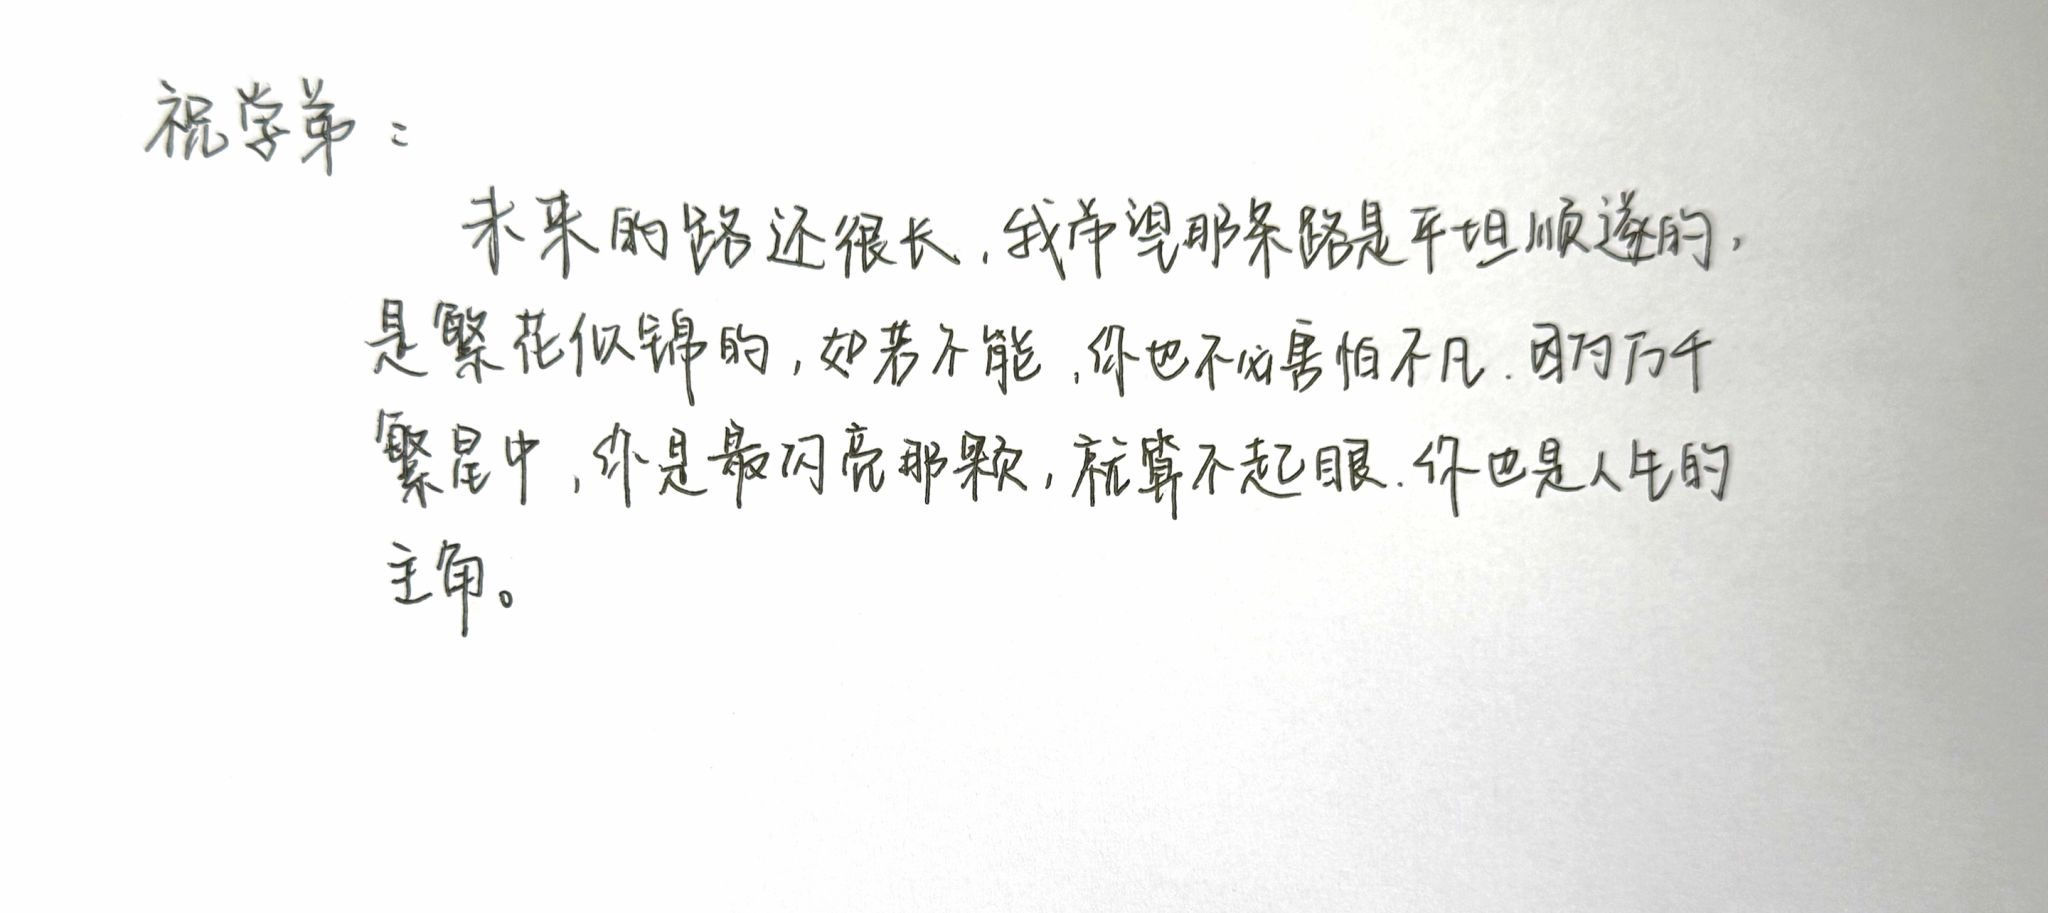 祝学弟：
未来的路还很长，我希望那条路是平坦顺遂的，
是繁花似锦的，如若不能，你也不必害怕不凡．因为万千
繁星中，你是最闪亮那颗，就算不起眼．你也是人生的
主角。